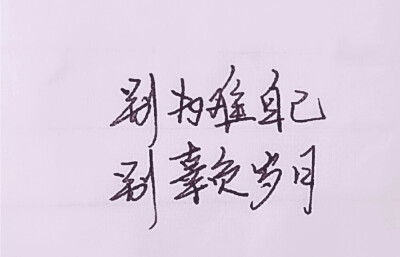 别为难自己
别辜负岁月